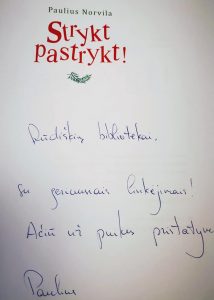 Paulius Norvila
Strykt
pastrykt!
Rūdiškių bibliotekai,
su geriausiais linkėjimais!
Ačiū už puikų pristatymą
Paulius